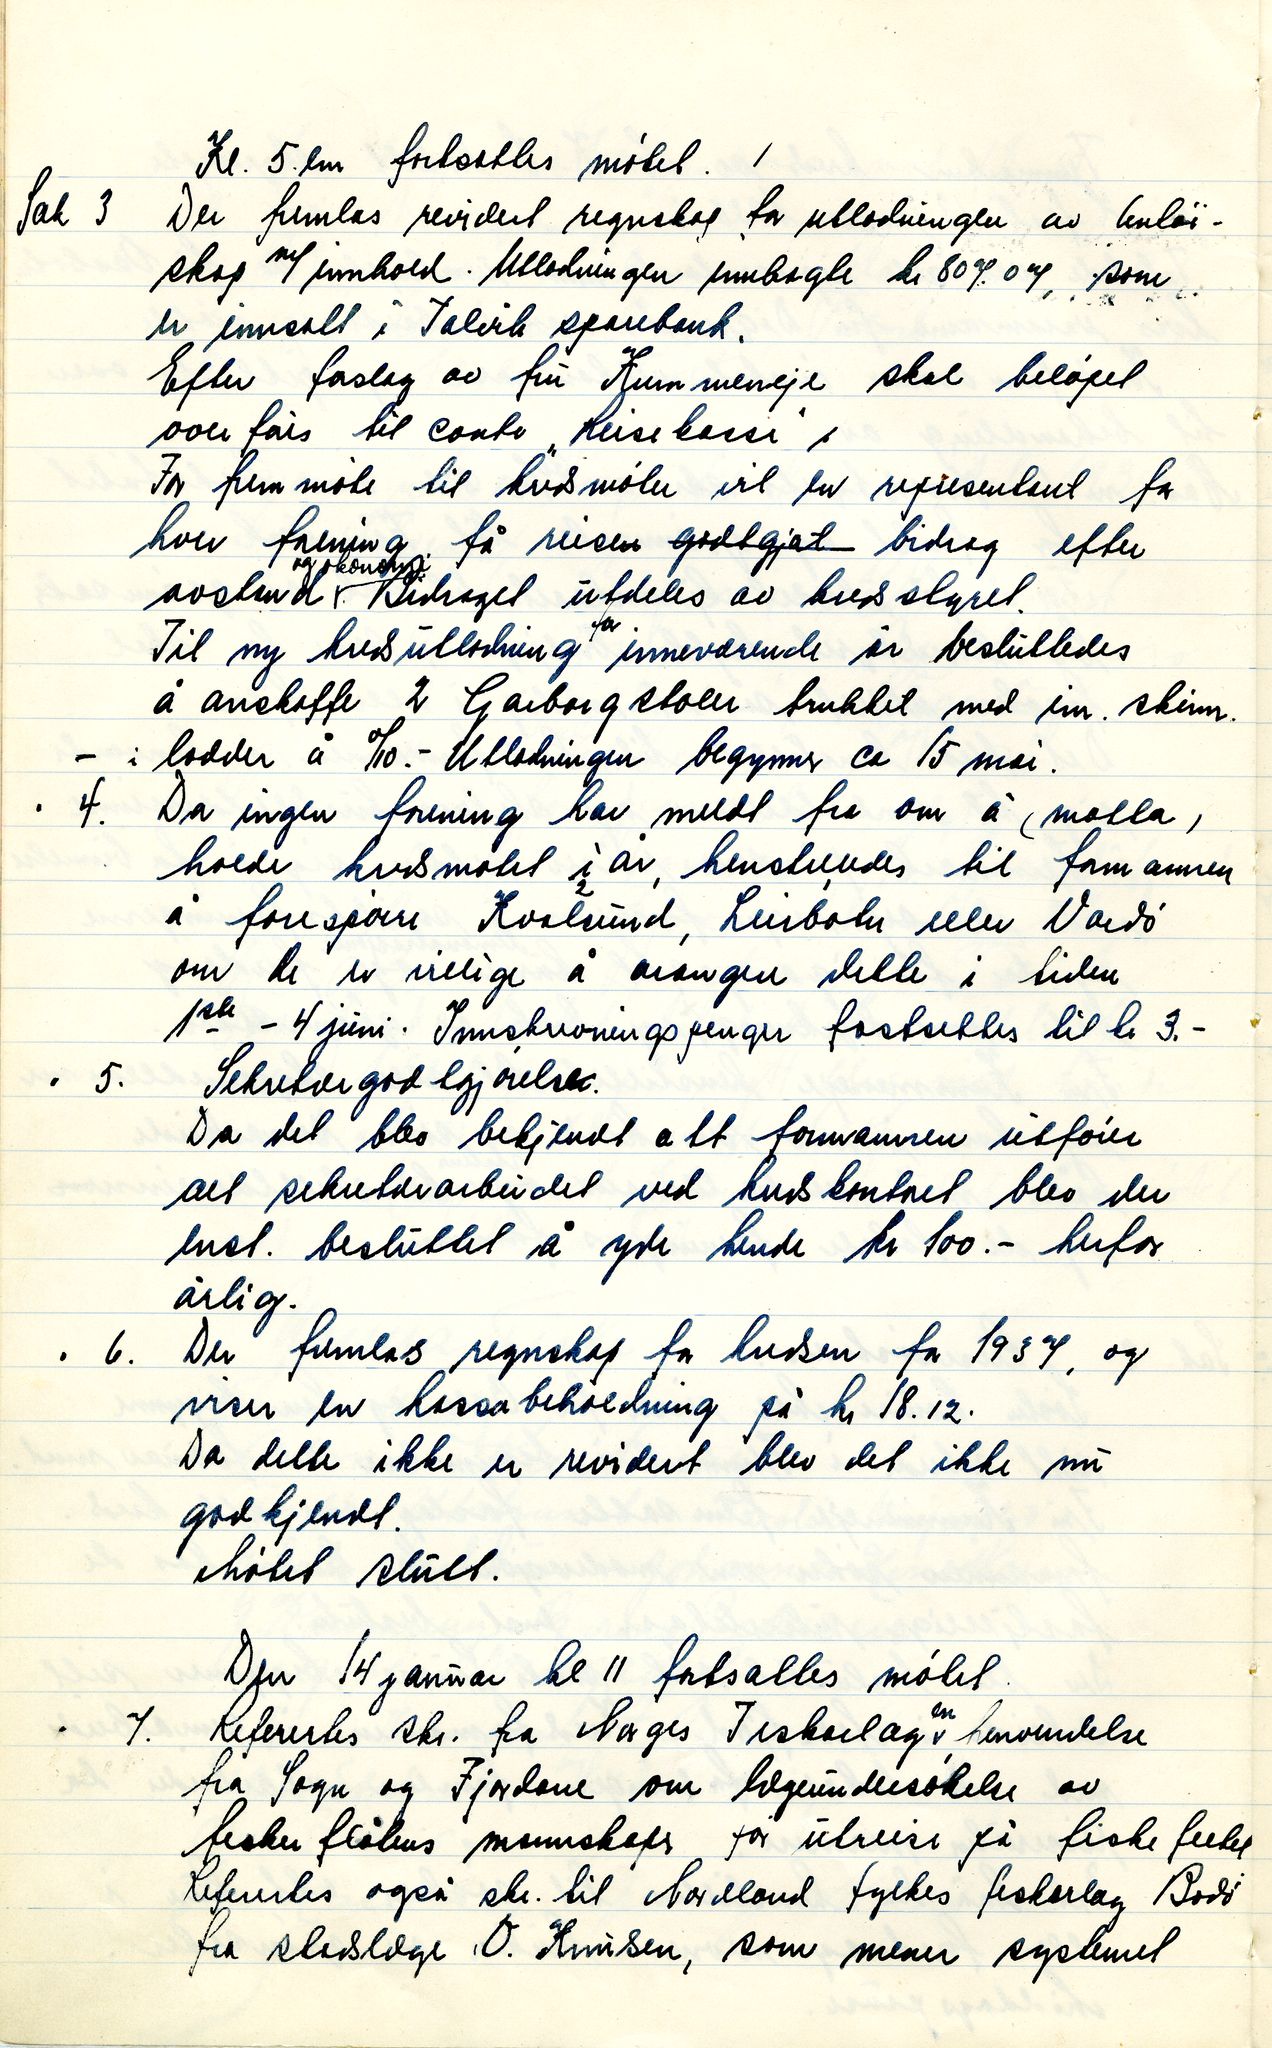 Kl. 5. em fortsattes møtet.
Sak 3 Der fremlas revidert regnskap for utlodningen av lintøi-
skap m/ innhold. Utlodningen innbragte kr 807.07, som
er innsatt i Talvik sparebank.
Efter forslag av fru Kummeneje skal beløpet
overføres til conto "Reisekasse".
For fremmøte til kredsmøter vil en representant for
hver forening få reisen godtgjort bidrag efter
avstand og økonomi. Bidraget utdeles av kredsstyret.
Til ny kredsutlodning for inneværende år besluttedes
å anskaffe 2 Garborgstoler trukket med im. skinn.
- i lodder å 0/10.- Utlodningen begynner ca 15 mai.
" 4. Da ingen forening har meldt fra om å (motta)
holde kredsmøtet i år, henstilledes til formannen
å forespørre Kvalsund, Leirbotn eller Vardø
om de er villige å arangere dette i tiden
1ste - 4 juni. Innskrivningspenger fastsettes til kr 3.-
" 5. Sekretærgodtgjørelse.
Da det blev bekjendt att formannen utfører
alt sekretærarbeidet ved kredskontoret blev der
enst. besluttet å yde hende kr 100.- herfor
årlig.
" 6. Der fremlas regnskap for kredsen for 1937, og
viser en kassabeholdning på kr 18.12.
Da dette ikke er revidert blev det ikke nu
godkjendt.
Møtet slutt.
Den 14 januar kl 11 fortsattes møtet.
" 7. Refereres skr. fra Norges Fiskarlag en henvendelse
fra Sogn og Fjordane om lægeundersøkelse av
fiskerflåtens mannskaper før utreise på fiskefeltet
Refereres også skr. til Nordland fylkes fiskarlag Bodø
fra stadslæge O. Knudsen, som mener systemet